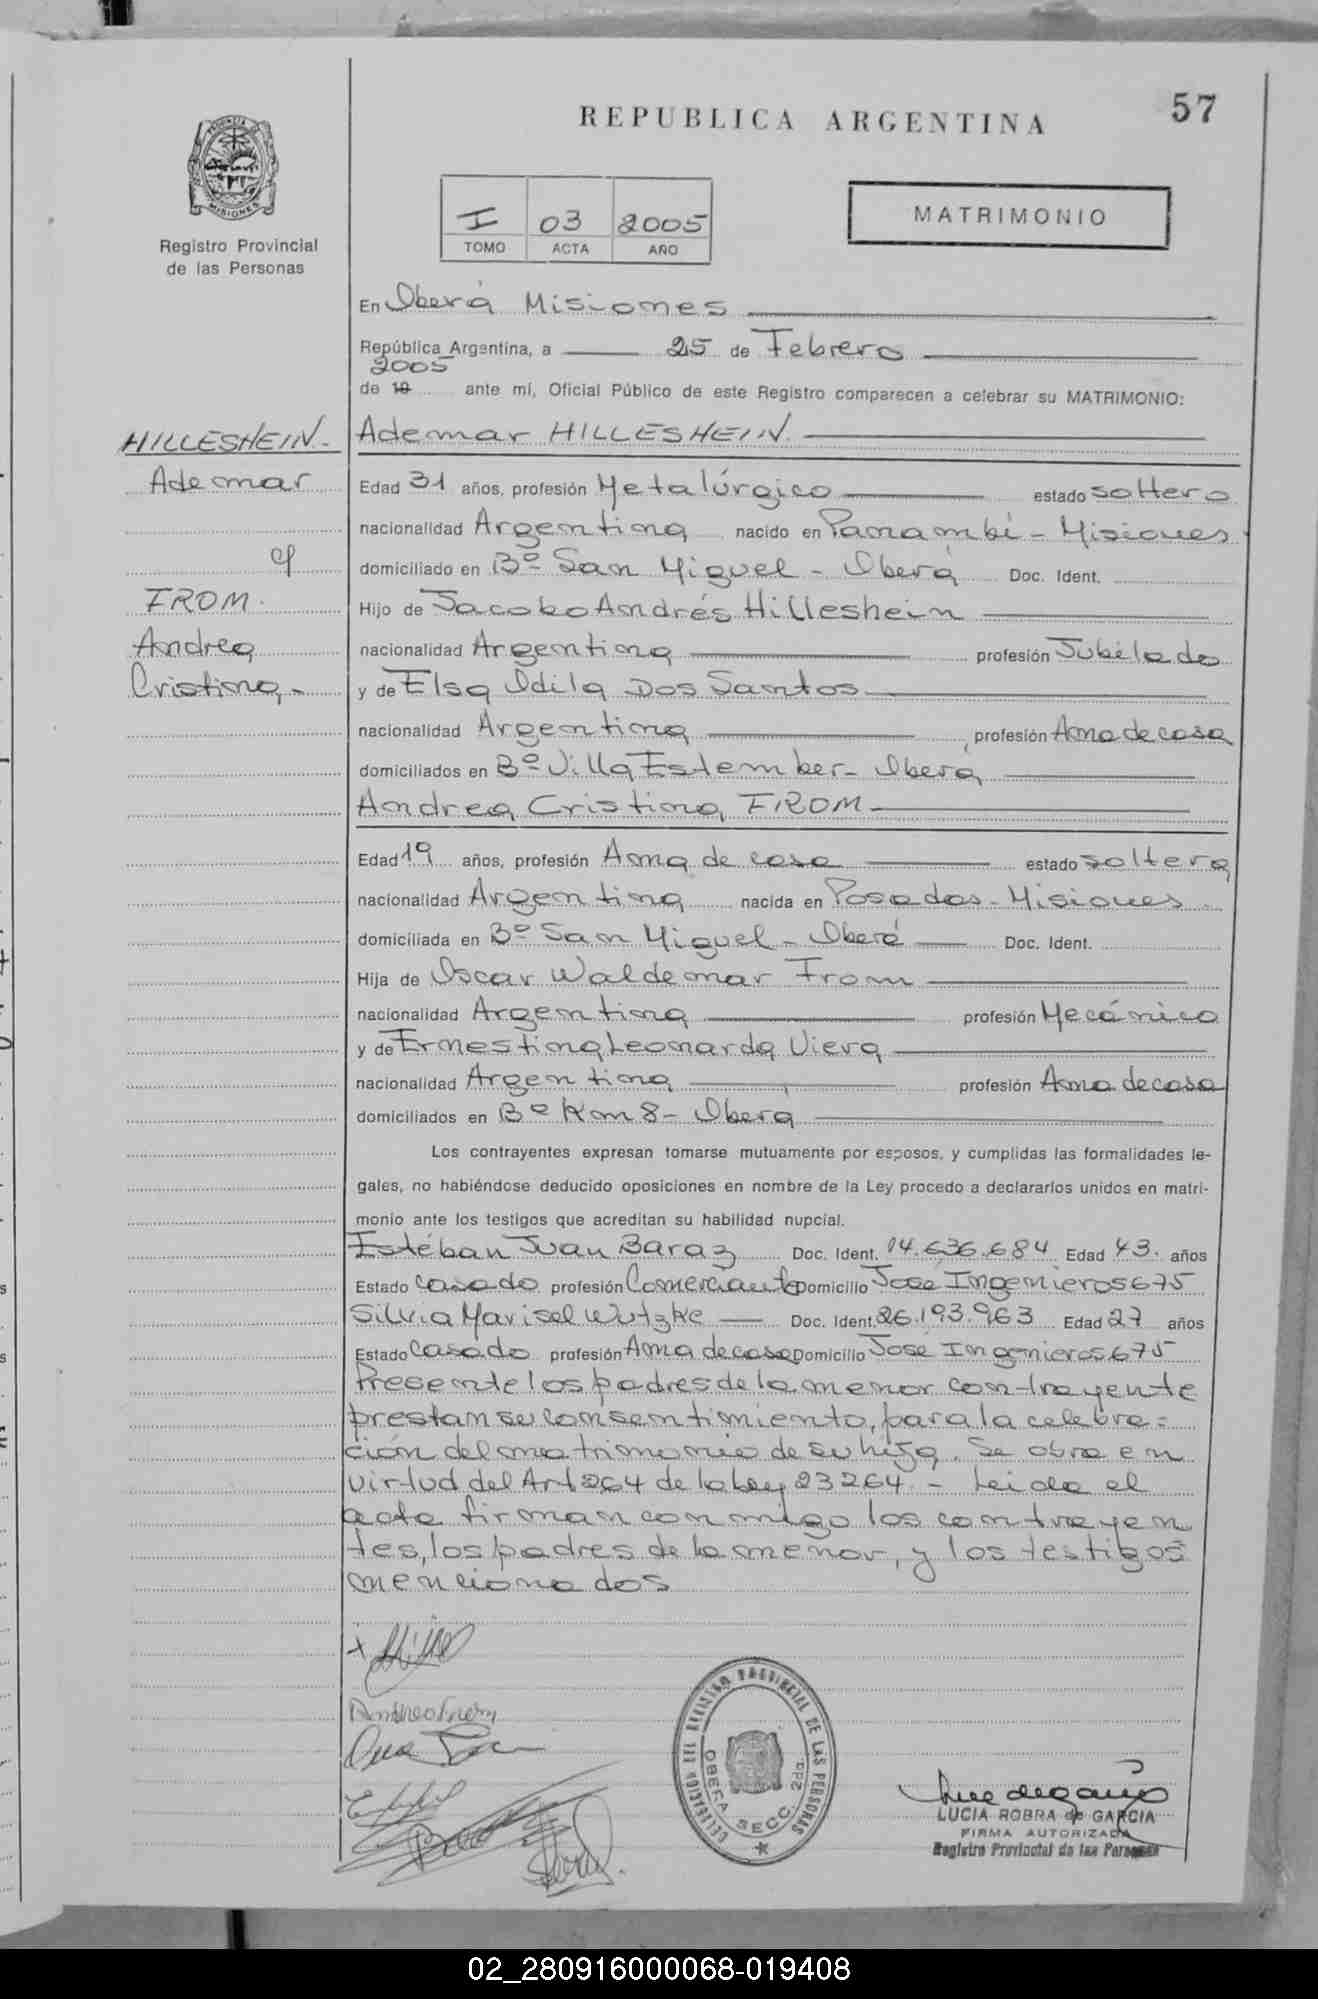 57
REPUBLICA ARGENTINA
PROVINCIA DE
MISIONES
Registro Provincial
de las Personas
I 03 2005
TOMO ACTA AÑO
MATRIMONIO
En Oberá Misiones
República Argentina, a 25 de Febrero
2005
de 19 ante mí, Oficial Público de este Registro comparecen a celebrar su MATRIMONIO:
HILLESHEIN.-
Ademar
y
FROM.
Andrea
Cristina.-
Ademar HILLESHEIN.
Edad 31 años, profesión Metalúrgico estado soltero
nacionalidad Argentina nacido en Panambí - Misiones
domiciliado en Bº San Miguel - Oberá Doc. Ident.
Hijo de Jacobo Andrés Hilleshein
nacionalidad Argentina profesión Jubilado
y de Elsa Idila Dos Santos
nacionalidad Argentina profesión Ama de casa
domiciliados en Bº Villa Estember - Oberá
Andrea Cristina FROM
Edad 19 años, profesión Ama de casa estado soltera
nacionalidad Argentina nacida en Posadas - Misiones
domiciliada en Bº San Miguel - Oberá Doc. Ident.
Hija de Oscar Waldemar From
nacionalidad Argentina profesión Mecánico
y de Ernestina Leonarda Viera
nacionalidad Argentina profesión Ama de casa
domiciliados en Bº Km 8 - Oberá
Los contrayentes expresan tomarse mutuamente por esposos, y cumplidas las formalidades le-
gales, no habiéndose deducido oposiciones en nombre de la Ley procedo a declararlos unidos en matri-
monio ante los testigos que acreditan su habilidad nupcial.
Estéban Juan Baraz Doc. Ident. 14.636.684 Edad 43. años
Estado casado profesión Comerciante Domicilio José Ingenieros 675
Silvia Marisel Wutzke Doc. Ident. 26.193.963 Edad 27 años
Estado casado profesión Ama de casa Domicilio José Ingenieros 675
Presente los padres de la menor contrayente
prestan su consentimiento, para la celebra=
ción del matrimonio de su hija. Se obra en
virtud del Art 264 de la Ley 23264.- Leida el
acta firman conmigo los contrayen
tes, los padres de la menor, y los testigos
mencionados
Andrea From
DELEGACION DEL REGISTRO PROVINCIAL DE LAS PERSONAS
OBERA SECC. 2da.
LUCIA ROBRA de GARCIA
FIRMA AUTORIZADA
Registro Provincial de las Personas
02_280916000068-019408